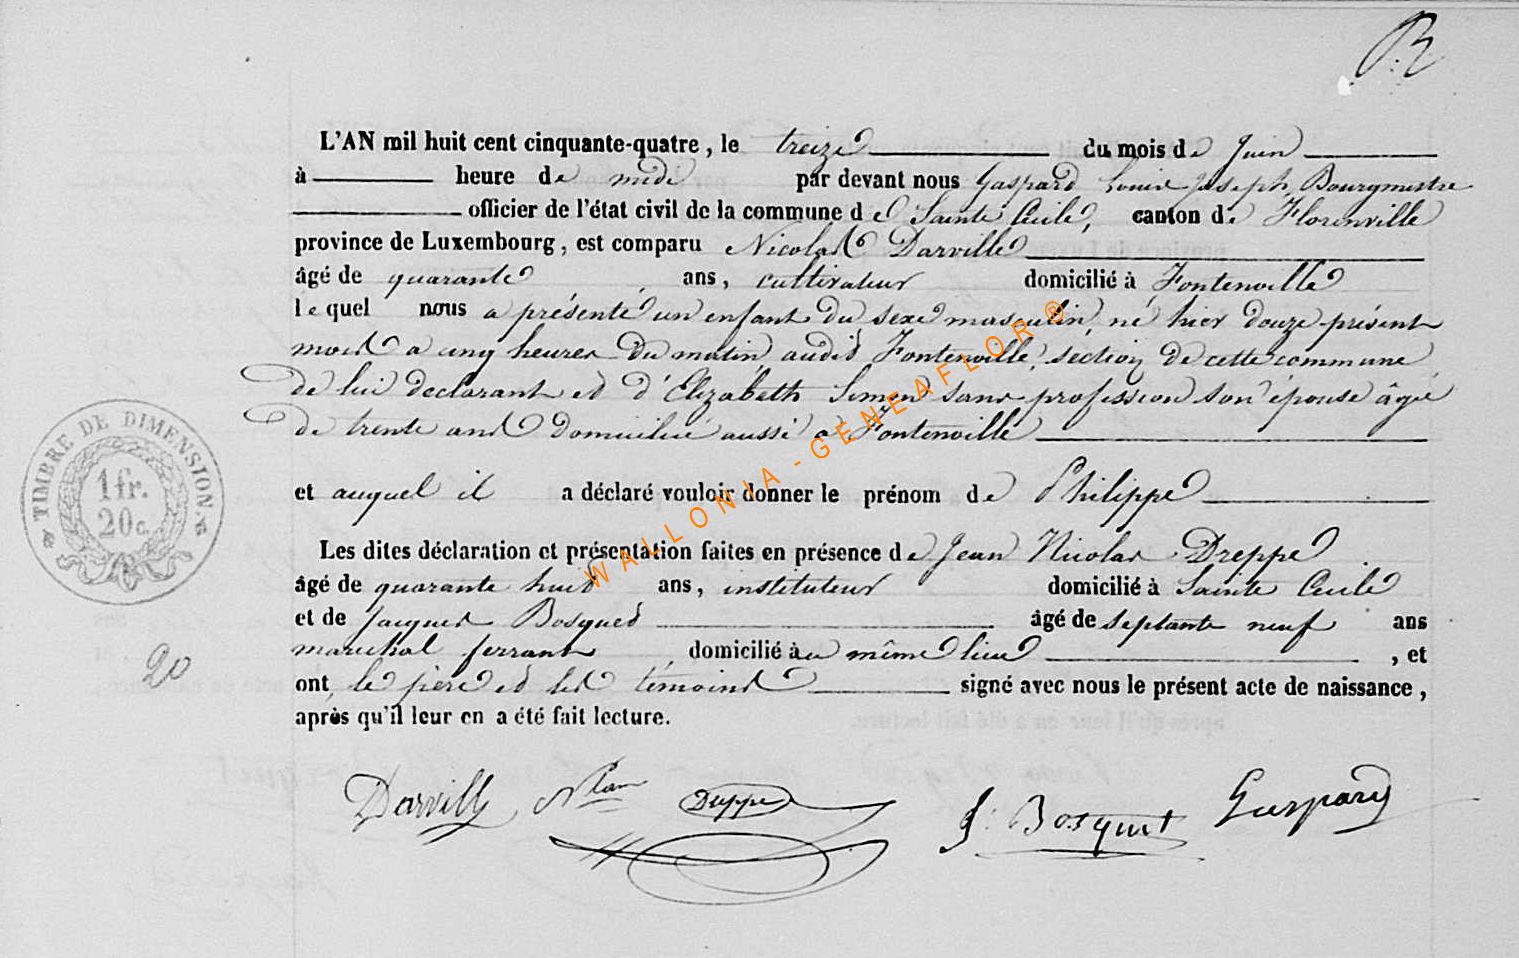 B
L'AN mil huit cent cinquante-quatre, le treize du mois de Juin
à heure de midi par devant nous Gaspard Louis Joseph, Bourgmestre
officier de l'état civil de la commune de Sainte Cécile, canton de Florenville
province de Luxembourg, est comparu Nicolas Darville
âgé de quarante ans, cultivateur domicilié à Fontenoille
lequel nous a présenté un enfant du sexe masculin, né hier douze présent
mois a cinq heures du matin audit Fontenoille, section de cette commune
de lui declarant et d'Elizabeth Simon sans profession son épouse âgée
de trente ans domiciliée aussi a Fontenoille
et auquel il a déclaré vouloir donner le prénom de Philippe
Les dites déclaration et présentation faites en présence de Jean Nicolas Dreppe
âgé de quarante huit ans, instituteur domicilié à Sainte Cécile
et de Jacques Bosquet âgé de septante neuf ans
maréchal ferrant domicilié au même lieu, et
ont, le père et les témoins signé avec nous le présent acte de naissance,
après qu'il leur en a été fait lecture.
TIMBRE DE DIMENSION
1 fr.
20 c.
20
Darville Nlas Dreppe J. Bosquet Gaspard
WALLONIA - GENEAFLOR ®